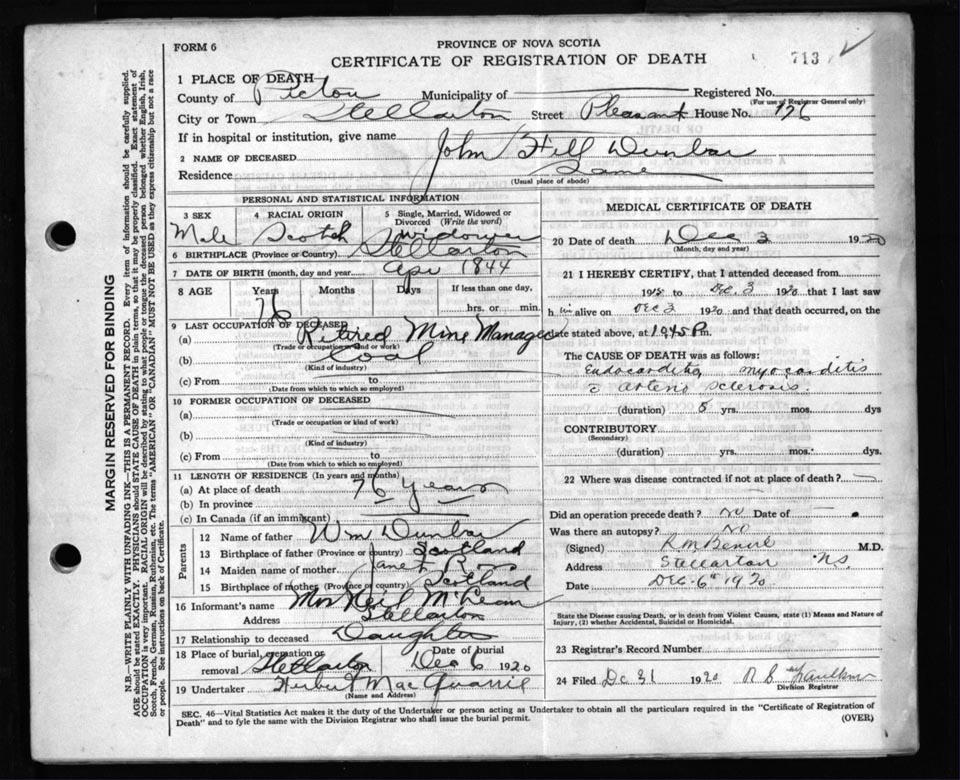 FORM 6
PROVINCE OF NOVA SCOTIA
CERTIFICATE OF REGISTRATION OF DEATH
713
1 PLACE OF DEATH
County of Pictou Municipality of Registered No.
(For use of Registrar General only)
City or Town Stellarton Street Pleasant House No. 176
If in hospital or institution, give name
2 NAME OF DECEASED John Hill Dunbar
Residence Same
(Usual place of abode)
PERSONAL AND STATISTICAL INFORMATION
3 SEX 4 RACIAL ORIGIN 5 Single, Married, Widowed or Divorced (Write the word)
Male Scotch widower
6 BIRTHPLACE (Province or Country) Stellarton
7 DATE OF BIRTH (month, day and year) Apr 1844
8 AGE Years Months Days If less than one day,
76 hrs. or min.
9 LAST OCCUPATION OF DECEASED
(a) Retired Mine Manager
(Trade or occupation or kind of work)
(b) Coal
(Kind of industry)
(c) From to
(Date from which to which so employed)
10 FORMER OCCUPATION OF DECEASED
(a)
(Trade or occupation or kind of work)
(b)
(Kind of industry)
(c) From to
(Date from which to which so employed)
11 LENGTH OF RESIDENCE (In years and months)
(a) At place of death 76 years
(b) In province
(c) In Canada (if an immigrant)
Parents
12 Name of father Wm Dunbar
13 Birthplace of father (Province or country) Scotland
14 Maiden name of mother Janet
15 Birthplace of mother (Province or country) Scotland
16 Informant's name Mrs Neil McLean
Address Stellarton
17 Relationship to deceased Daughter
18 Place of burial, cremation or removal Stellarton Date of burial Dec 6 1920
19 Undertaker Herbert MacQuarrie
(Name and Address)
MEDICAL CERTIFICATE OF DEATH
20 Date of death Dec 3 1920
(Month, day and year)
21 I HEREBY CERTIFY, that I attended deceased from
1915 to Dec. 3 1920 that I last saw
him alive on Dec 3 1920 and that death occurred, on the
date stated above, at 10 45 P m.
The CAUSE OF DEATH was as follows:
Endocarditis, myocarditis
c arterio sclerosis.
(duration) 5 yrs. mos. dys
CONTRIBUTORY
(Secondary)
(duration) yrs. mos. dys
22 Where was disease contracted if not at place of death?
Did an operation precede death? no Date of
Was there an autopsy? no
(Signed) M.D.
Address Stellarton N.S.
Date Dec. 6th 1920
State the Disease causing Death, or in death from Violent Causes, state (1) Means and Nature of
Injury, (2) whether Accidental, Suicidal or Homicidal.
23 Registrar's Record Number
24 Filed Dec 31 1920
Division Registrar
SEC. 46—Vital Statistics Act makes it the duty of the Undertaker or person acting as Undertaker to obtain all the particulars required in the "Certificate of Registration of
Death" and to fyle the same with the Division Registrar who shall issue the burial permit. (OVER)
MARGIN RESERVED FOR BINDING
N.B.—WRITE PLAINLY WITH UNFADING INK—THIS IS A PERMANENT RECORD. Every item of information should be carefully supplied.
AGE should be stated EXACTLY. PHYSICIANS should STATE CAUSE OF DEATH in plain terms, so that it may be properly classified. Exact statement of
OCCUPATION is very important. RACIAL ORIGIN will be described by stating to what people or tongue the deceased person belonged whether English, Irish,
Scotch, French, German, Russian, Ruthenian, etc. The terms "AMERICAN" OR "CANADIAN" MUST NOT BE USED as they express citizenship but not a race
or people. See instructions on back of Certificate.